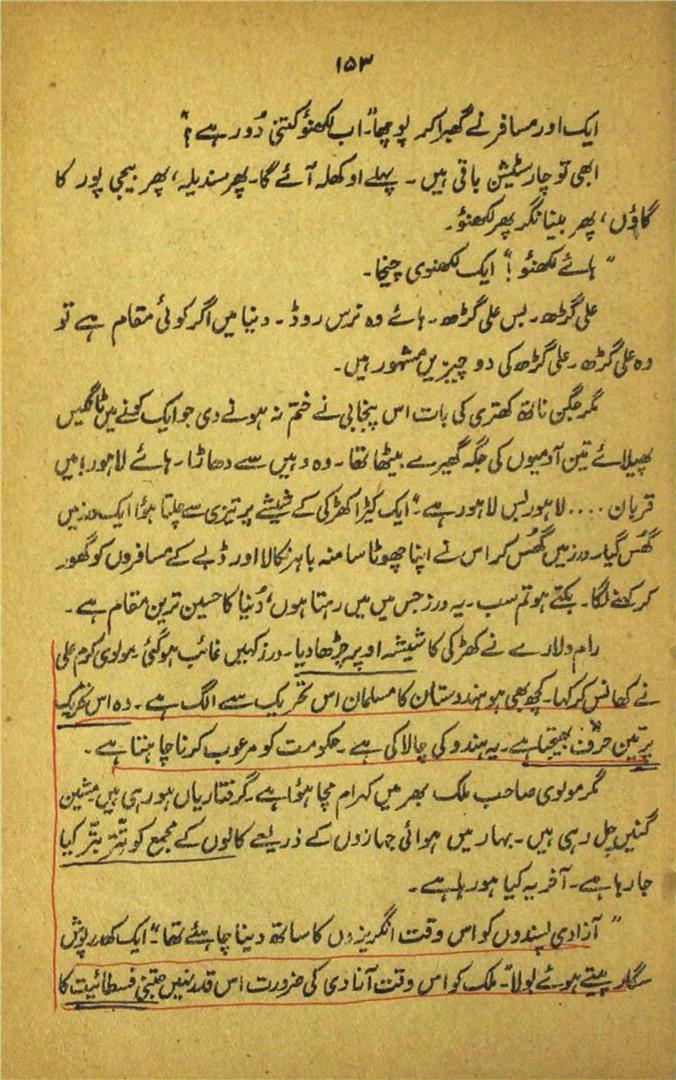 ۱۵۳
ایک اور مسافر نے گھبرا کر پوچھا "۔ اب لکھنؤ کتنی دُور ہے؟"
ابھی تو چار سٹیشن باقی ہیں ۔ پہلے اوکھلہ آئے گا۔ پھر سندیلہ، پھر بیجی پور کا
گاؤں، پھر بینا نگر پھر لکھنؤ۔
"ہائے لکھنؤ!" ایک لکھنوی چیخا۔
علی گڑھ۔ بس علی گڑھ۔ ہائے وہ نرس روڈ۔ دنیا میں اگر کوئی مقام ہے تو
وہ علی گڑھ۔ علی گڑھ کی دو چیزیں مشہور ہیں۔
مگر جگن ناتھ کھتری کی بات اس پنجابی نے ختم نہ ہونے دی جو ایک کونے میں ٹانگیں
پھیلائے تین آدمیوں کی جگہ گھیرے بیٹھا تھا۔ وہ وہیں سے دھاڑا۔ ہائے لاہور! میں
قربان .... لاہور بس لاہور ہے۔" ایک کیڑا کھڑکی کے شیشے پر تیزی سے چلتا ہؤا ایک درز میں
گھُس گیا۔ درز میں گھُس کر اس نے اپنا چھوٹا سا منہ باہر نکالا اور ڈبے کے مسافروں کو گھور
کر کہنے لگا۔ بکتے ہو تم سب۔ یہ درز جس میں میں رہتا ہوں، دُنیا کا حسین ترین مقام ہے۔
رام دلارے نے کھڑکی کا شیشہ اوپر چڑھا دیا۔ درز کہیں غائب ہو گئی۔ مولوی کرم علی
نے کھانس کر کہا۔ کچھ بھی ہو ہندوستان کا مسلمان اس تحریک سے الگ ہے۔ وہ اس تحریک
پر تین حرف بھیجتا ہے۔ یہ ہندو کی چالاکی ہے۔ حکومت کو مرعوب کرنا چاہتا ہے۔
مگر مولوی صاحب ملک بھر میں کہرام مچا ہؤا ہے۔ گرفتاریاں ہو رہی ہیں مشین
گنیں چل رہی ہیں۔ بہار میں ہوائی جہازوں کے ذریعے کالوں کے مجمع کو تتّر بتّر کیا
جا رہا ہے۔ آخر یہ کیا ہو رہا ہے۔
"آزادی پسندوں کو اس وقت انگریزوں کا ساتھ دینا چاہئے تھا۔" ایک کھدر پوش
سگار پیتے ہوئے بولا"۔ ملک کو اس وقت آزادی کی ضرورت اس قدر نہیں جتنی فسطائیت کا